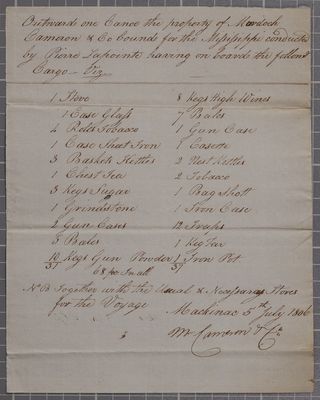 Outward one Canoe the property of Murdoch
Cameron & Co bound for the Missisippi conducted
by Pierre Lapointe having on board the follow.g
Cargo Viz
1 Stove
1 Case Glass
4 Roles Tobacco
1 Case Sheet Iron
3 Baskets Kettles
1 Chest Tea
3 Kegs Sugar
1 Grindstone
2 Gun Cases
5 Bales
10 Kegs Gun Powder
37
8 Kegs High Wines
7 Bales
1 Gun Case
1 Casette
2 Nest Kettles
2 Tobacco
1 Bag Shott
1 Iron Case
12 Traps
1 Keg Tar
1 Iron Pot
37
68 Small
NB Together with the Usual & Necessary Stores
for the Voyage
Mackinac 5th July 1806
M Cameron & Co